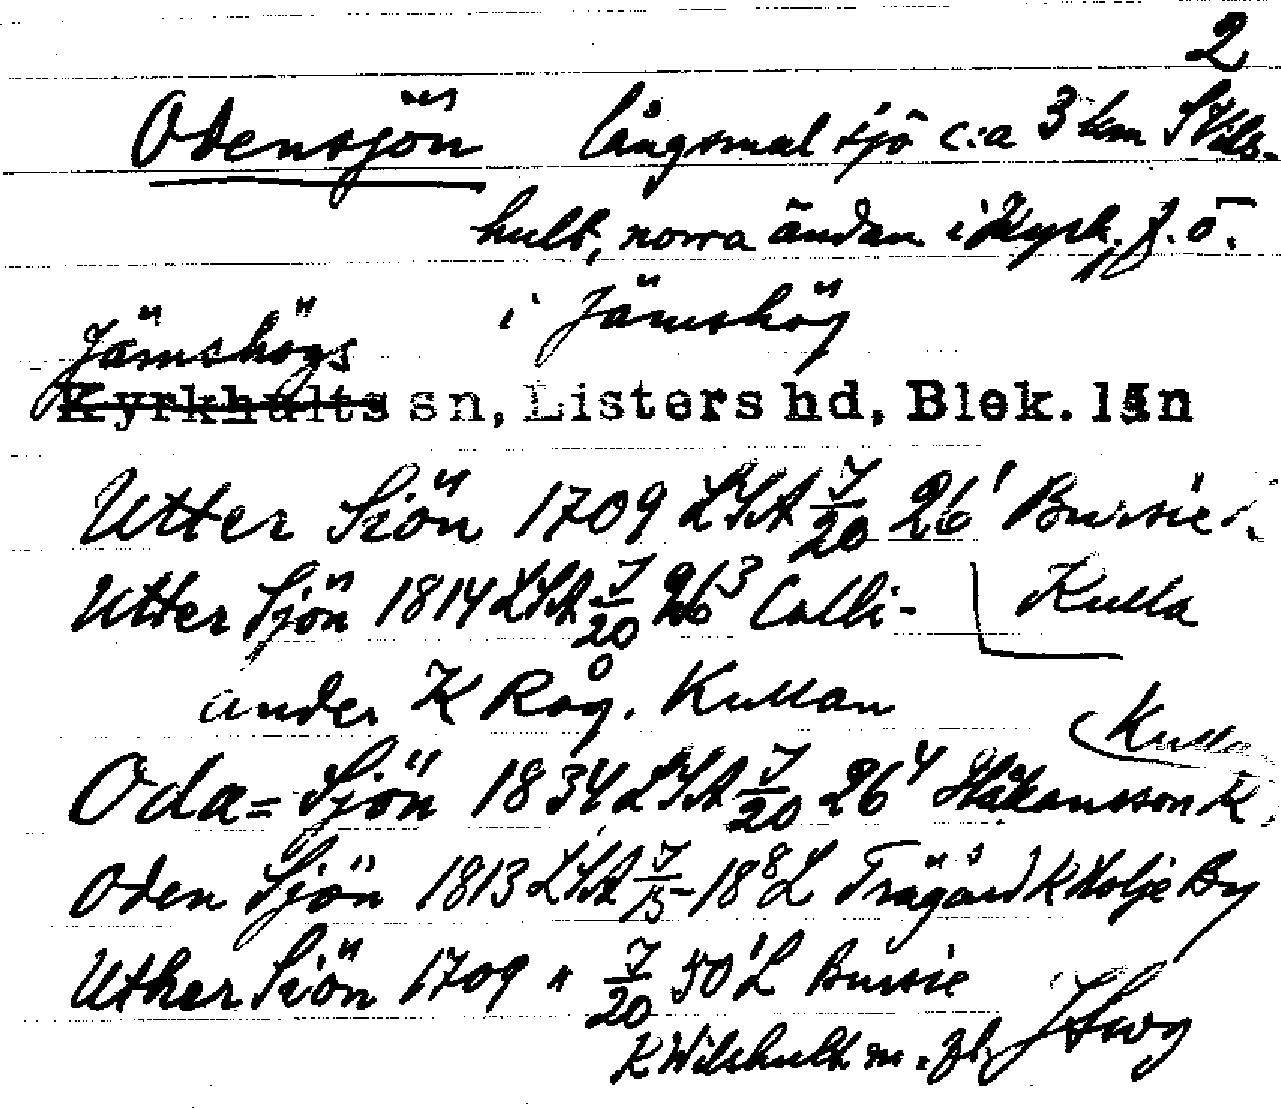 2
Odensjön långsmal sjö c:a 3 km S Vils-
hult, norra ändan i Kyrkh. f. ö.
i Jämshög
Jämshögs
Kyrkhults sn, Listers hd, Blek. län
Utter Siön 1709 LSA 7/20 26¹ Bursie
Utter Sjön 1814 LSA 7/20 26³ Calli- Kulla
ander K Råg. Kullan
Kulla
Oda= Sjön 1834 LSA 7/20 26⁴ Håkansson K
Oden Sjön 1813 LSA 7/15 18⁸ L Trägård K Holje By
Uther Siön 1709 " 7/20 50¹ L Bursie
K Wilshult m. fl.